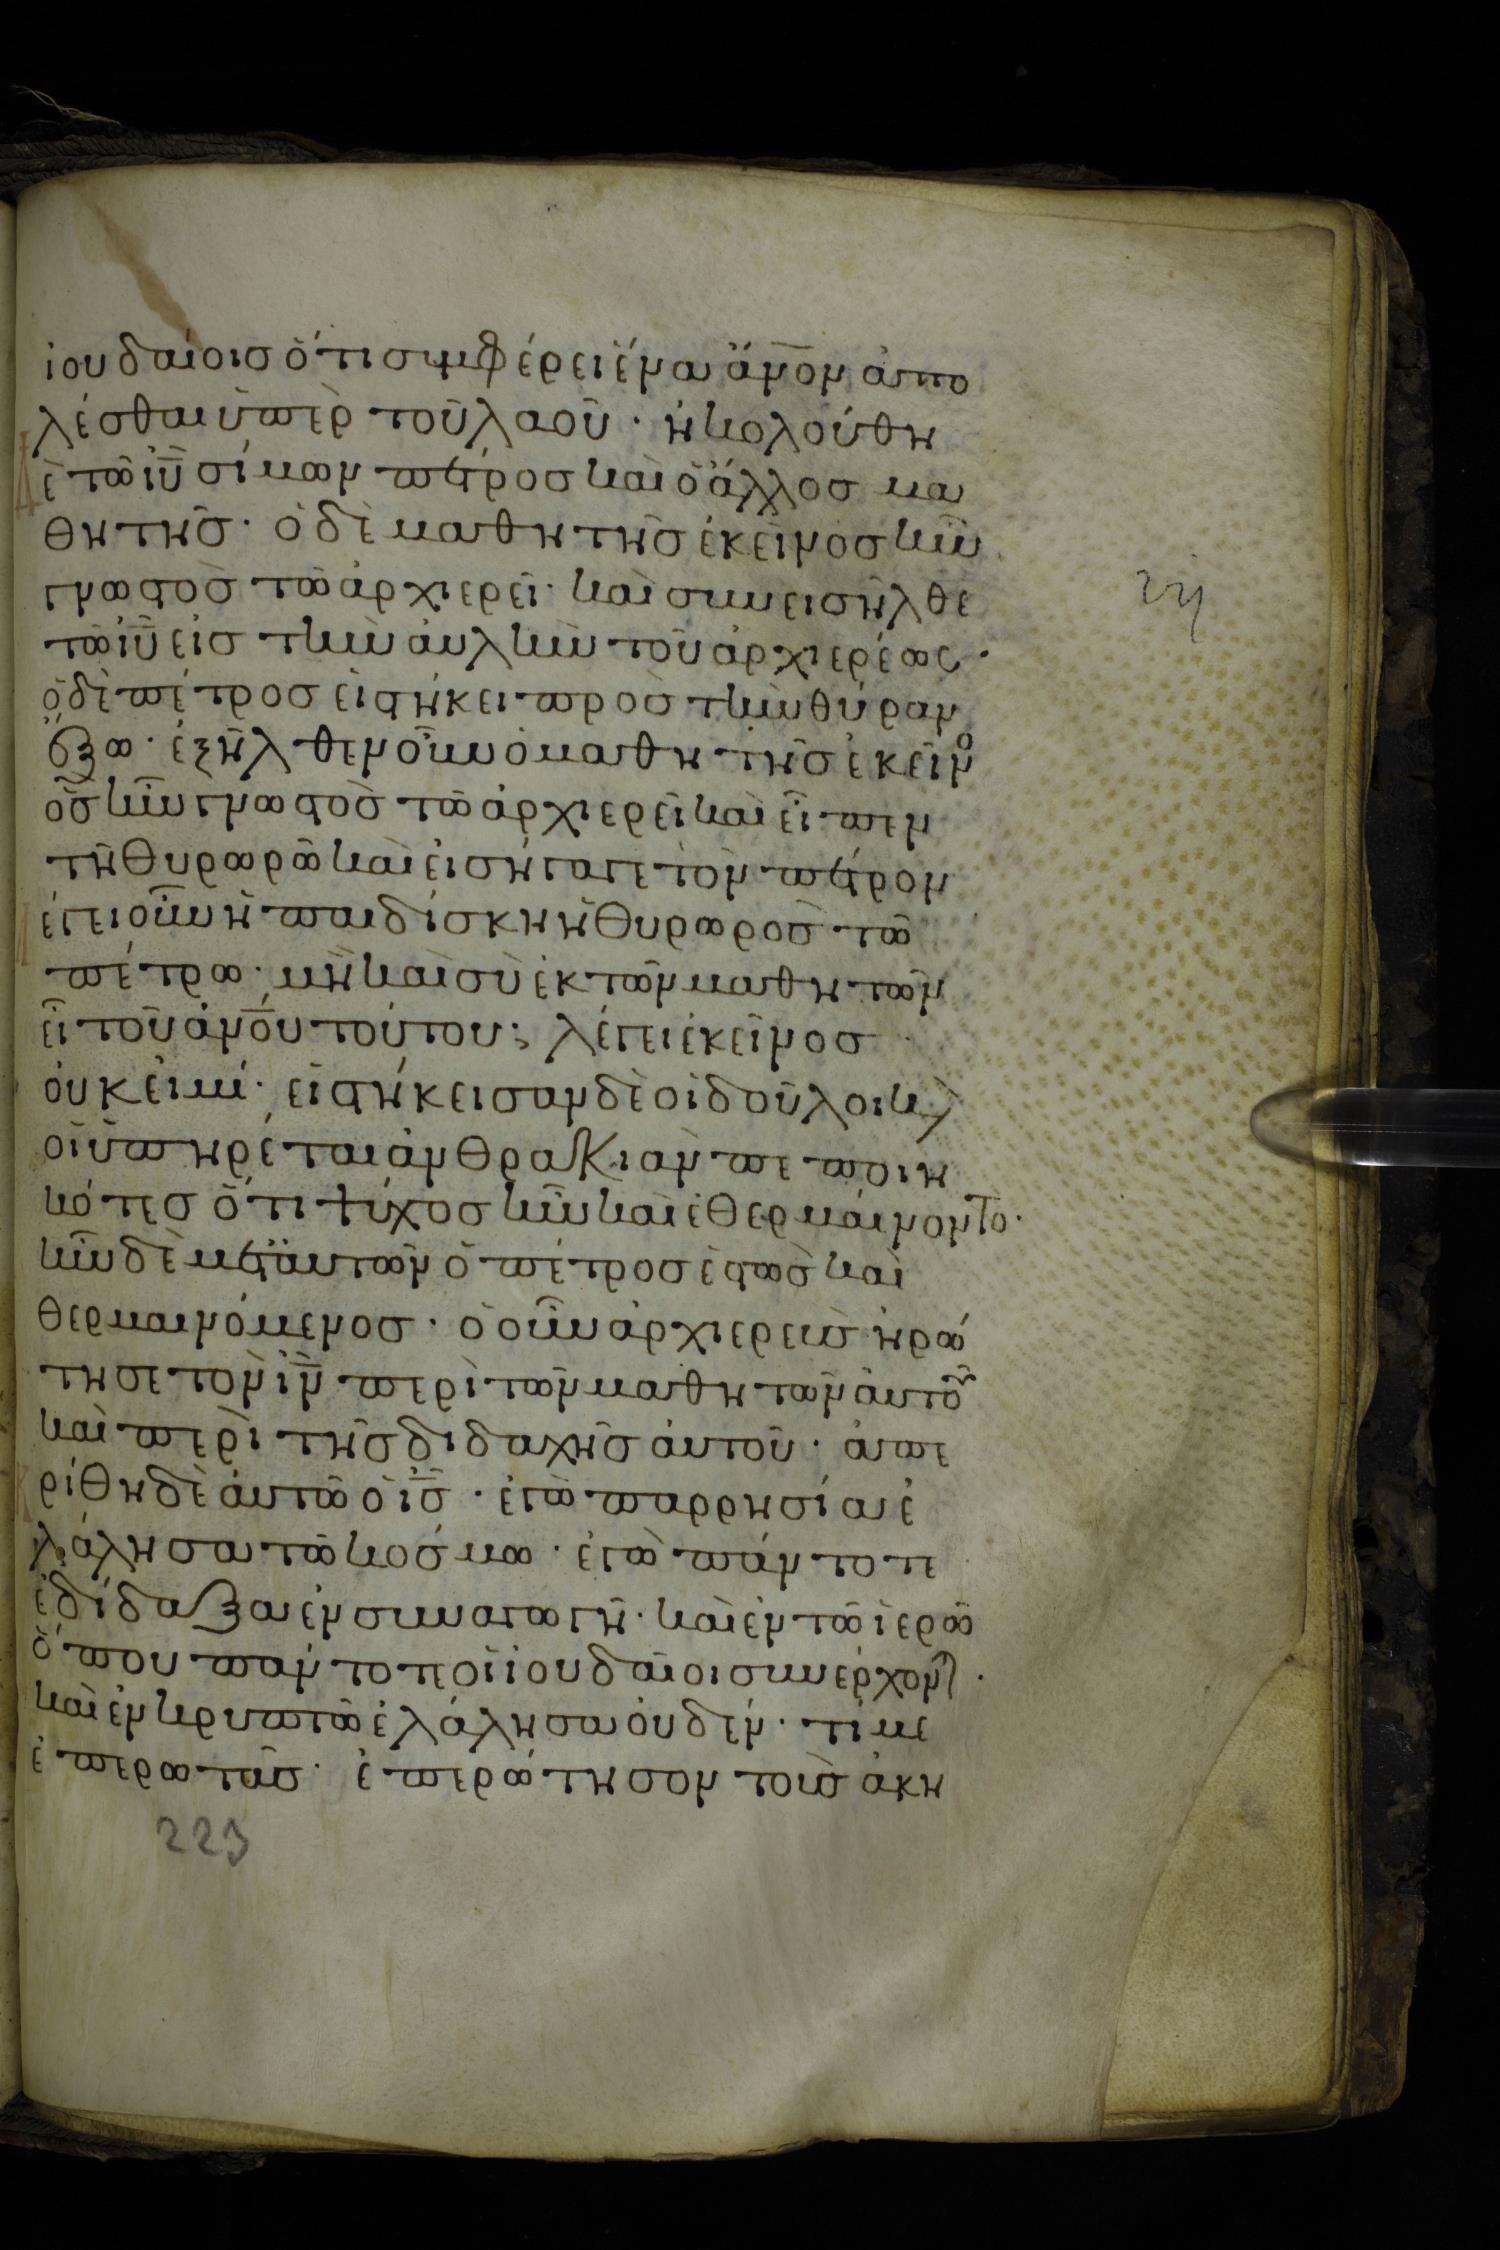 ἰουδαίοισ ὅτι συμφέρει ἕνα ἄνον ἀπο
λέσθαι ὑπὲρ τοῦ λαοῦ · ἠκολούθη
ἐ τῶ ιῦ σίμων πέτροσ καὶ ὁ ἄλλοσ μα
θητῆσ · ὁ δὲ μαθητῆσ ἐκεῖνοσ ἦν
γνωστὸσ τῶ ἀρχιερεῖ · καὶ συνεισῆλθε
τῶ ιῦ εἰσ τὴν ἀυλὴν τοῦ ἀρχιερέως ·
ὁ δὲ πέτροσ εἱστήκει πρὸσ τὴν θύραν
ἔξω · ἐξῆλθεν οὖν ὁ μαθητῆσ ἐκεῖνο
ὃσ ἦν γνωστὸσ τῶ ἀρχιερεῖ καὶ εἶπεν
τῆ θυρωρῶ καὶ εἰσήγαγε τὸν πέτρον
λέγει οὖν ἡ παιδίσκη ἡ θυρωρὸσ τῶ
πέτρω · μὴ καὶ σὺ ἐκ τῶν μαθητῶν
εἶ τοῦ ἀνου τούτου ; λέγει ἐκεῖνοσ
ὀυκ εἰμί · εἱστήκεισαν δὲ οἱ δοῦλοι κ
οἱ ὑπηρέται ἀνθρακιὰν πεποιη
κότεσ ὅτι ψύχοσ ἦν καὶ ἐθερμαίνοντο ·
ἦν δὲ μετ ἀυτῶν ὁ πέτροσ ἑστὼσ καὶ
θερμαινόμενοσ · ὁ οὖν ἀρχιερεὺσ ἠρώ
τησε τὸν ιν περὶ τῶν μαθητῶν ἀυτοῦ
καὶ περὶ τῆσ διδαχῆσ ἀυτοῦ · ἀπε
ρίθη δὲ ἀυτῶ ὁ ισ · ἐγὼ παρρησία ἐ
λάλησα τῶ κόσμω · ἐγὼ πάντοτε
ἐδίδαξα ἐν συναγωγῆ · καὶ ἐν τῶ ἱερῶ
ὅπου πάντοτε οἱ ἰουδαῖοι συνέρχοντ ·
καὶ ἐν κρυπτῶ ἐλάλησα ὀυδέν · τί με
ἐπερωτᾶσ · ἐπερώτησον τοὺσ ἀκη
223